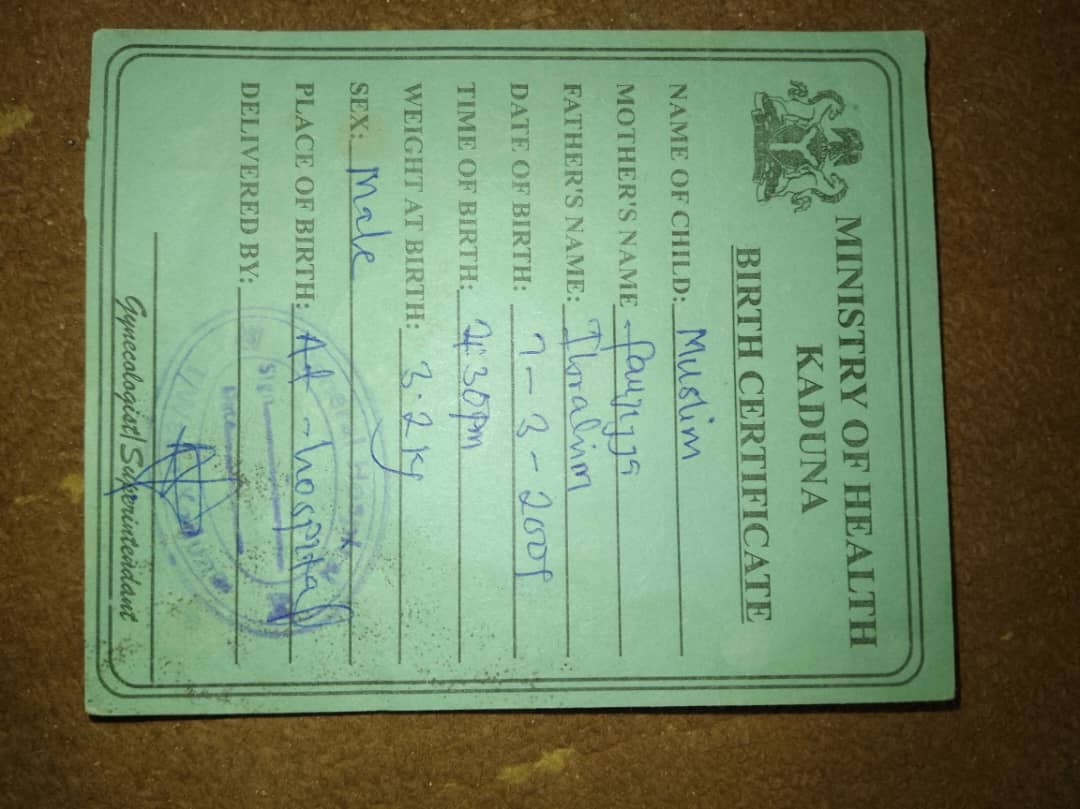 MINISTRY OF HEALTH
KADUNA
BIRTH CERTIFICATE
NAME OF CHILD: Muslim
MOTHER'S NAME
FATHER'S NAME: Ibrahim
DATE OF BIRTH: 7-3-2009
TIME OF BIRTH: 4:30pm
WEIGHT AT BIRTH: 3.2kg
SEX: Male
PLACE OF BIRTH: At - hospital
DELIVERED BY:
Gynecologist/Superintendant